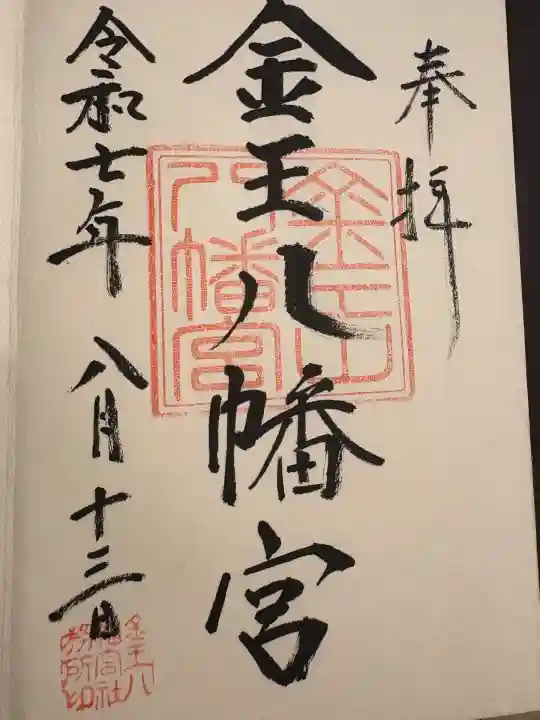 奉拝
金王八幡宮
令和七年 八月十三日
金王八
幡宮社
務所印